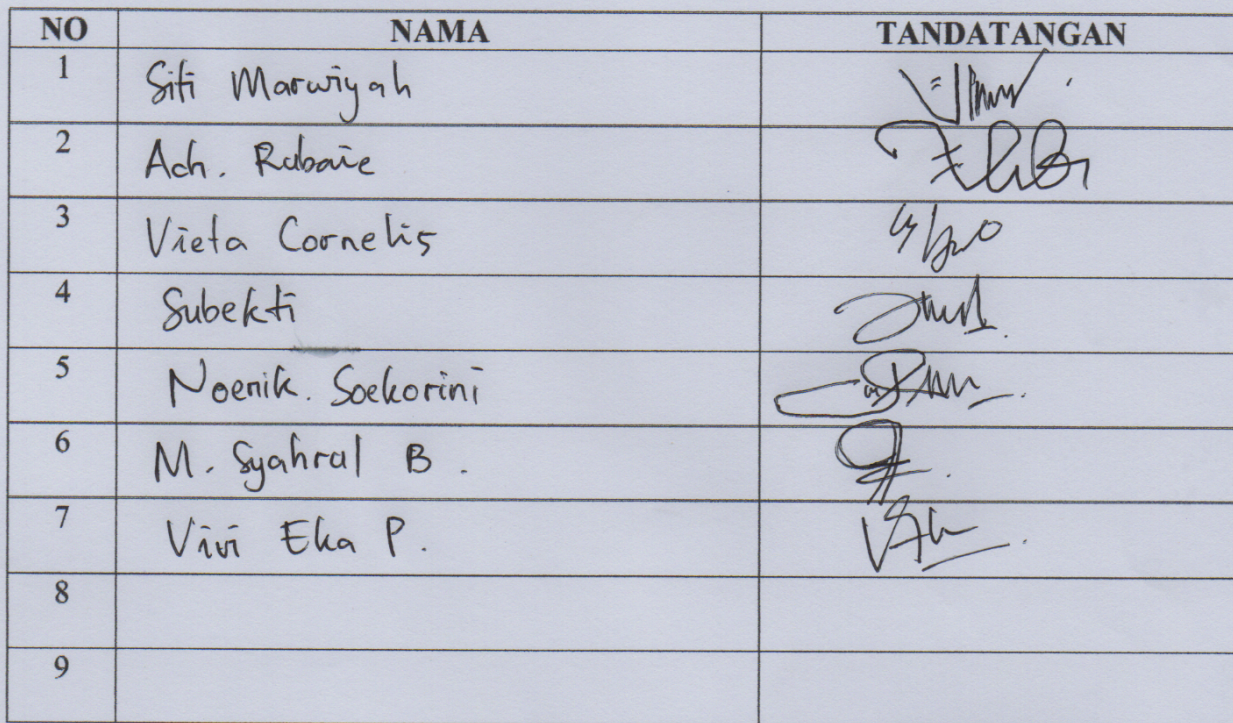 NO NAMA TANDATANGAN
1 Siti Marwiyah
2 Ach. Rubaie
3 Vieta Cornelis
4 Subekti
5 Noenik. Soekorini
6 M. Syahrul B.
7 Vivi Eka P.
8
9